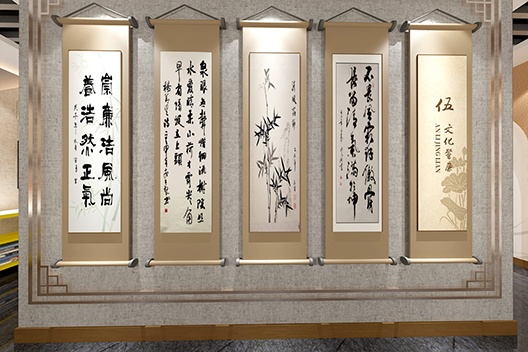 崇廉洁風尚
養浩然正氣
泉眼無聲惜細流樹陰照
水愛晴柔小荷才露尖尖角
早有蜻蜓立上頭
不要人誇好顏色
只留清氣滿乾坤
伍
文化警廉
ANLIJINGLIAN